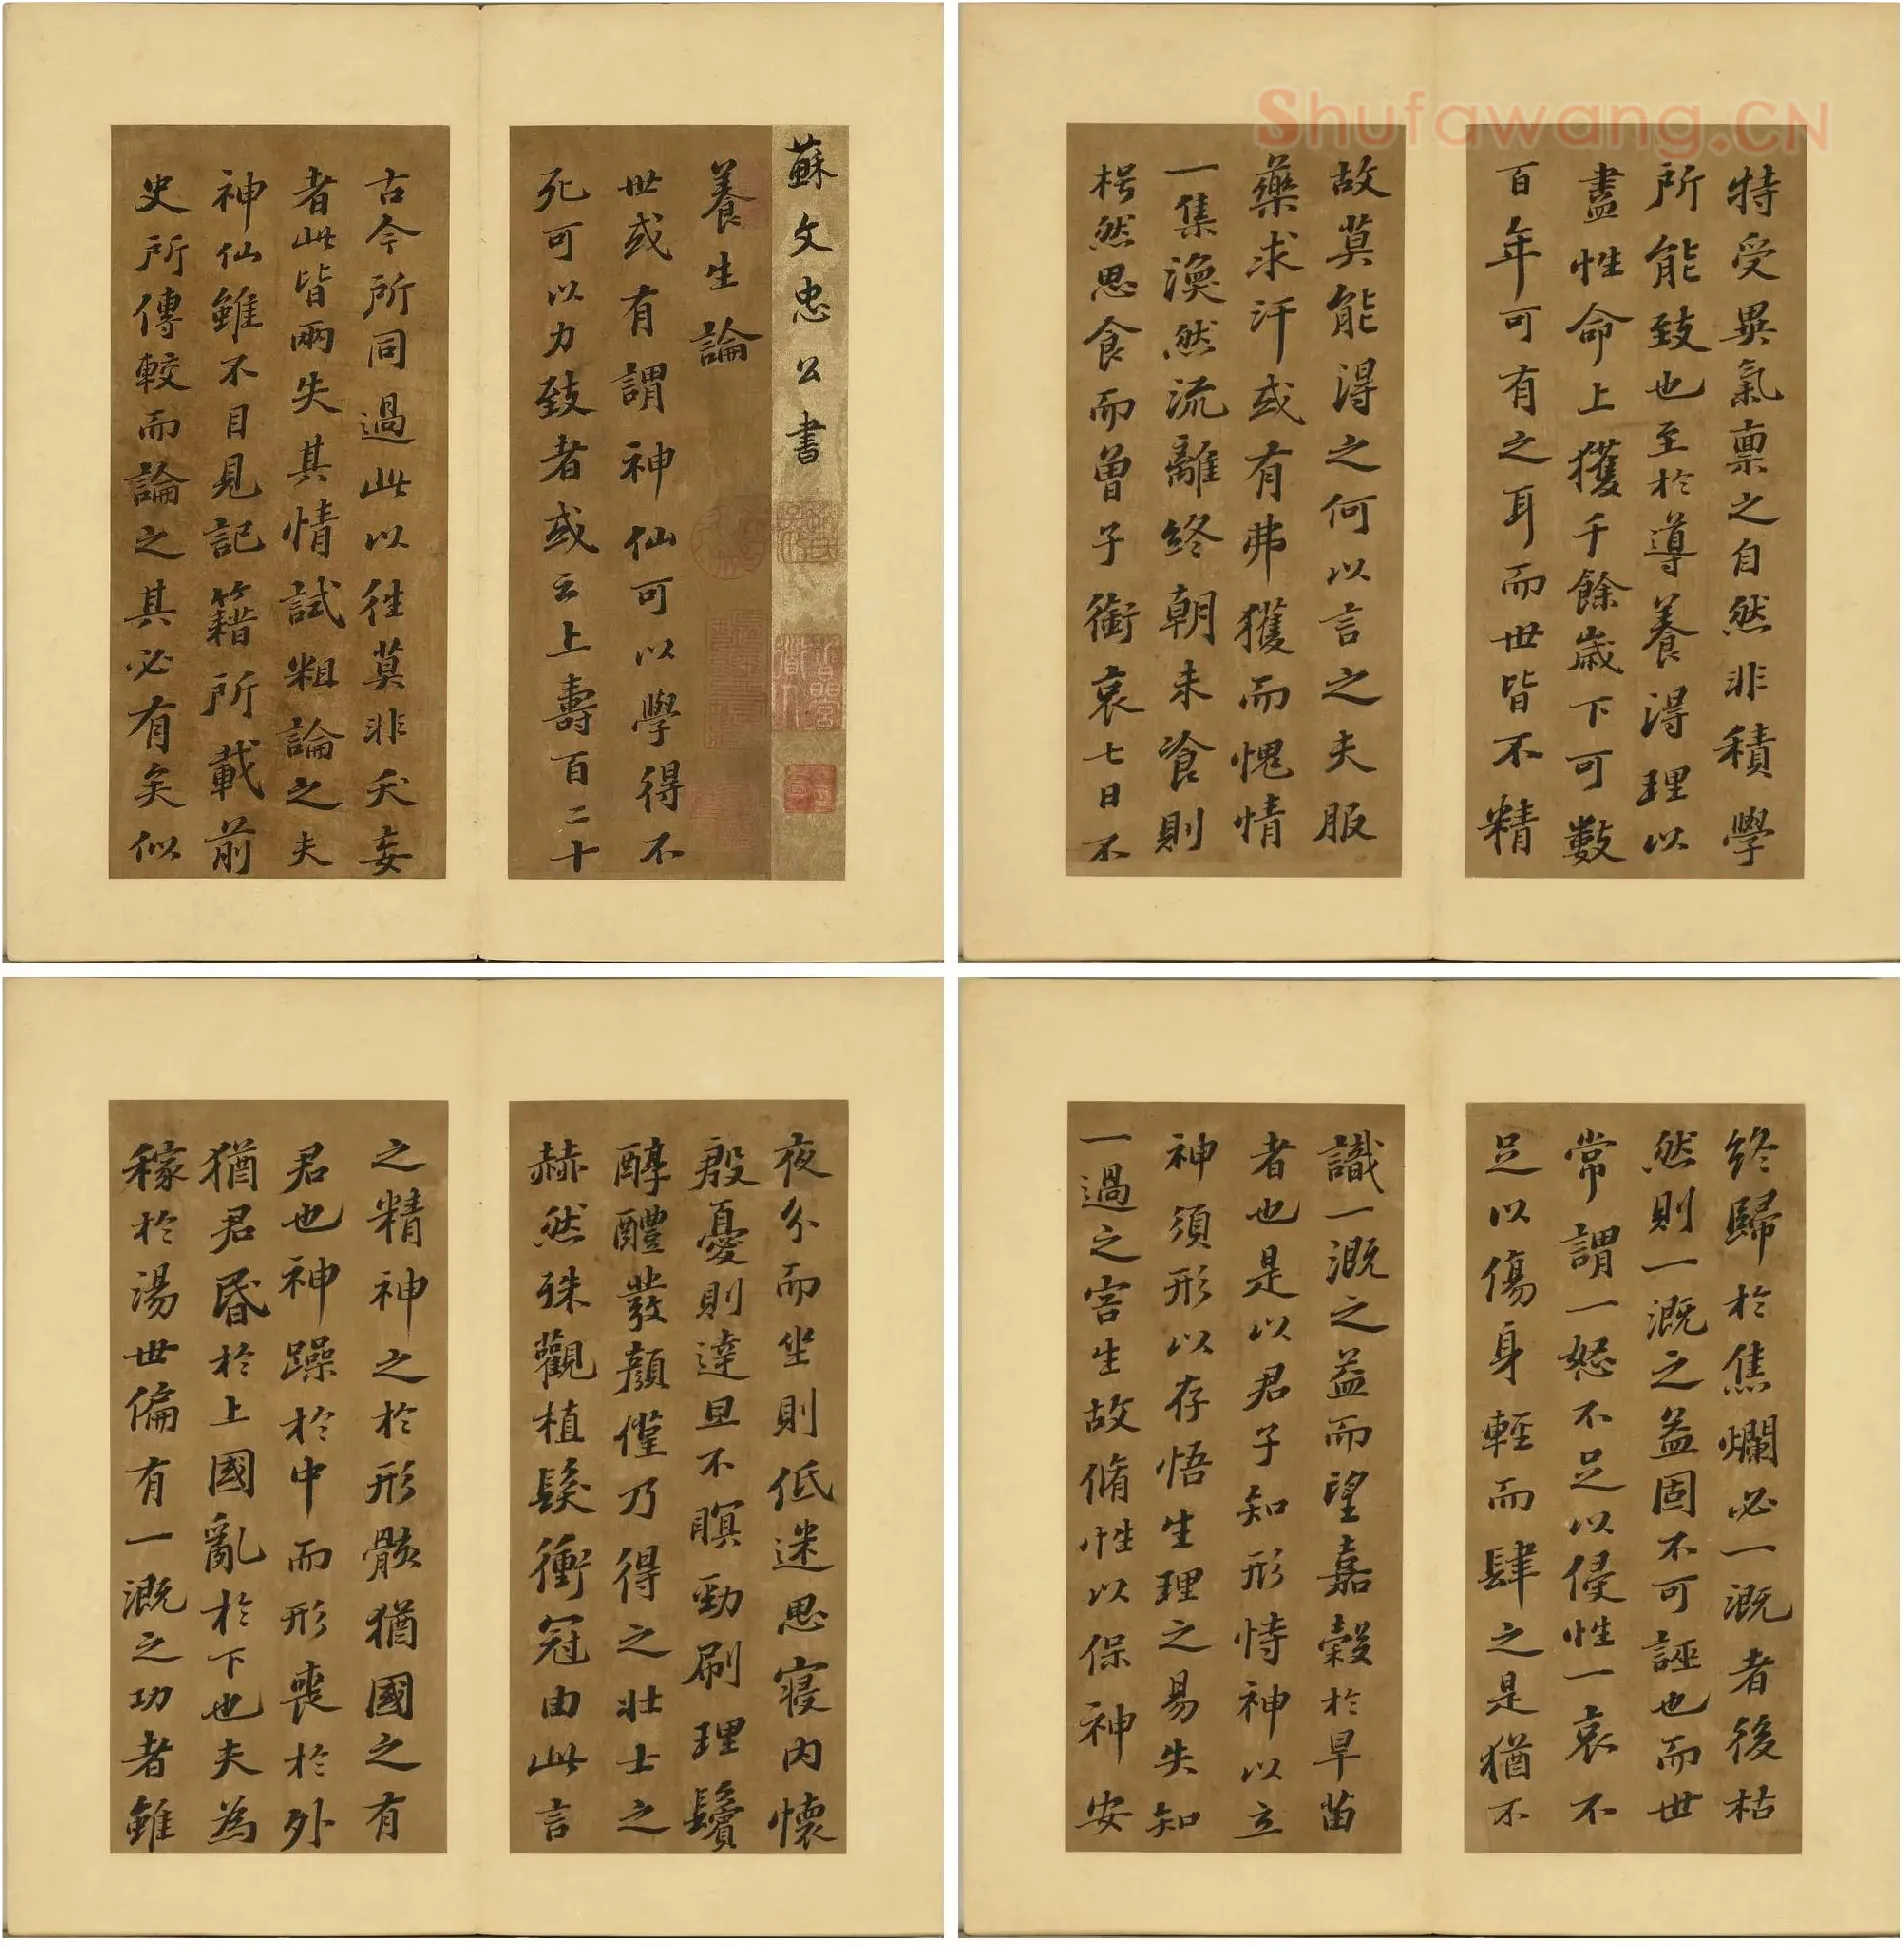 蘇文忠公書
養生論
世或有謂神仙可以學得不
死可以力致者或云上壽百二十
古今所同過此以往莫非夭妄
者此皆兩失其情試粗論之夫
神仙雖不目見記籍所載前
史所傳較而論之其必有矣似
Shufawang.CN
特受異氣稟之自然非積學
所能致也至於導養得理以
盡性命上獲千餘歲下可數
百年可有之耳而世皆不精
故莫能得之何以言之夫服
藥求汗或有弗獲而愧情
一集渙然流離終朝未飡則
枵然思食而曾子銜哀七日不
夜分而坐則低迷思寢內懷
殷憂則達旦不瞑勁刷理鬢
醇醴發顏僅乃得之壯士之
赫然殊觀植髮衝冠由此言
之精神之於形骸猶國之有
君也神躁於中而形喪於外
猶君昬於上國亂於下也夫為
稼於湯世偏有一溉之功者雖
終歸於焦爛必一溉者後枯
然則一溉之益固不可誣也而世
常謂一怒不足以侵性一哀不
足以傷身輕而肆之是猶不
識一溉之益而望嘉穀於旱苗
者也是以君子知形恃神以立
神須形以存悟生理之易失知
一過之害生故脩性以保神安